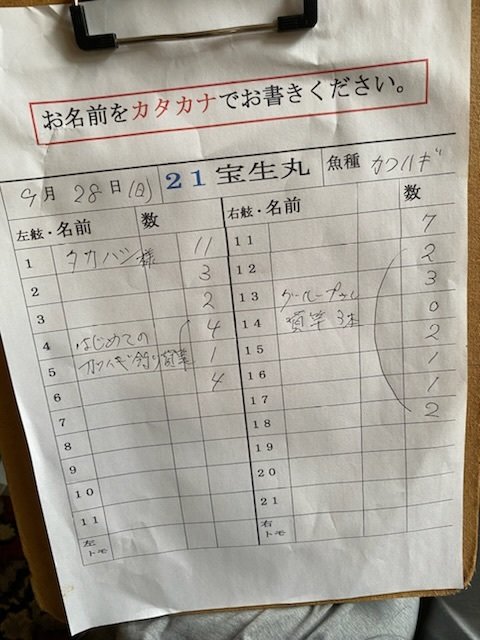 お名前をカタカナでお書きください。
9月 28日(日) 21宝生丸 魚種 カワハギ
左舷・名前 数 右舷・名前 数
1 タカハシ様 11
2 3
3 2
4 はじめての 4
5 カワハギ釣り 貸竿 1
6 4
7
8
9
10
11
左トモ
11 7
12 2
13 グループさん 3
14 貸竿 3本 0
15 2
16 1
17 1
18 2
19
20
21
右トモ